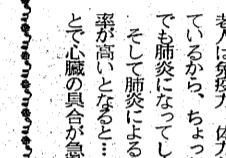 老人は免疫力、体力
ているから、ちょっ
でも肺炎になってし
そして肺炎による
率が高いとなると…
とで心臓の具合が急